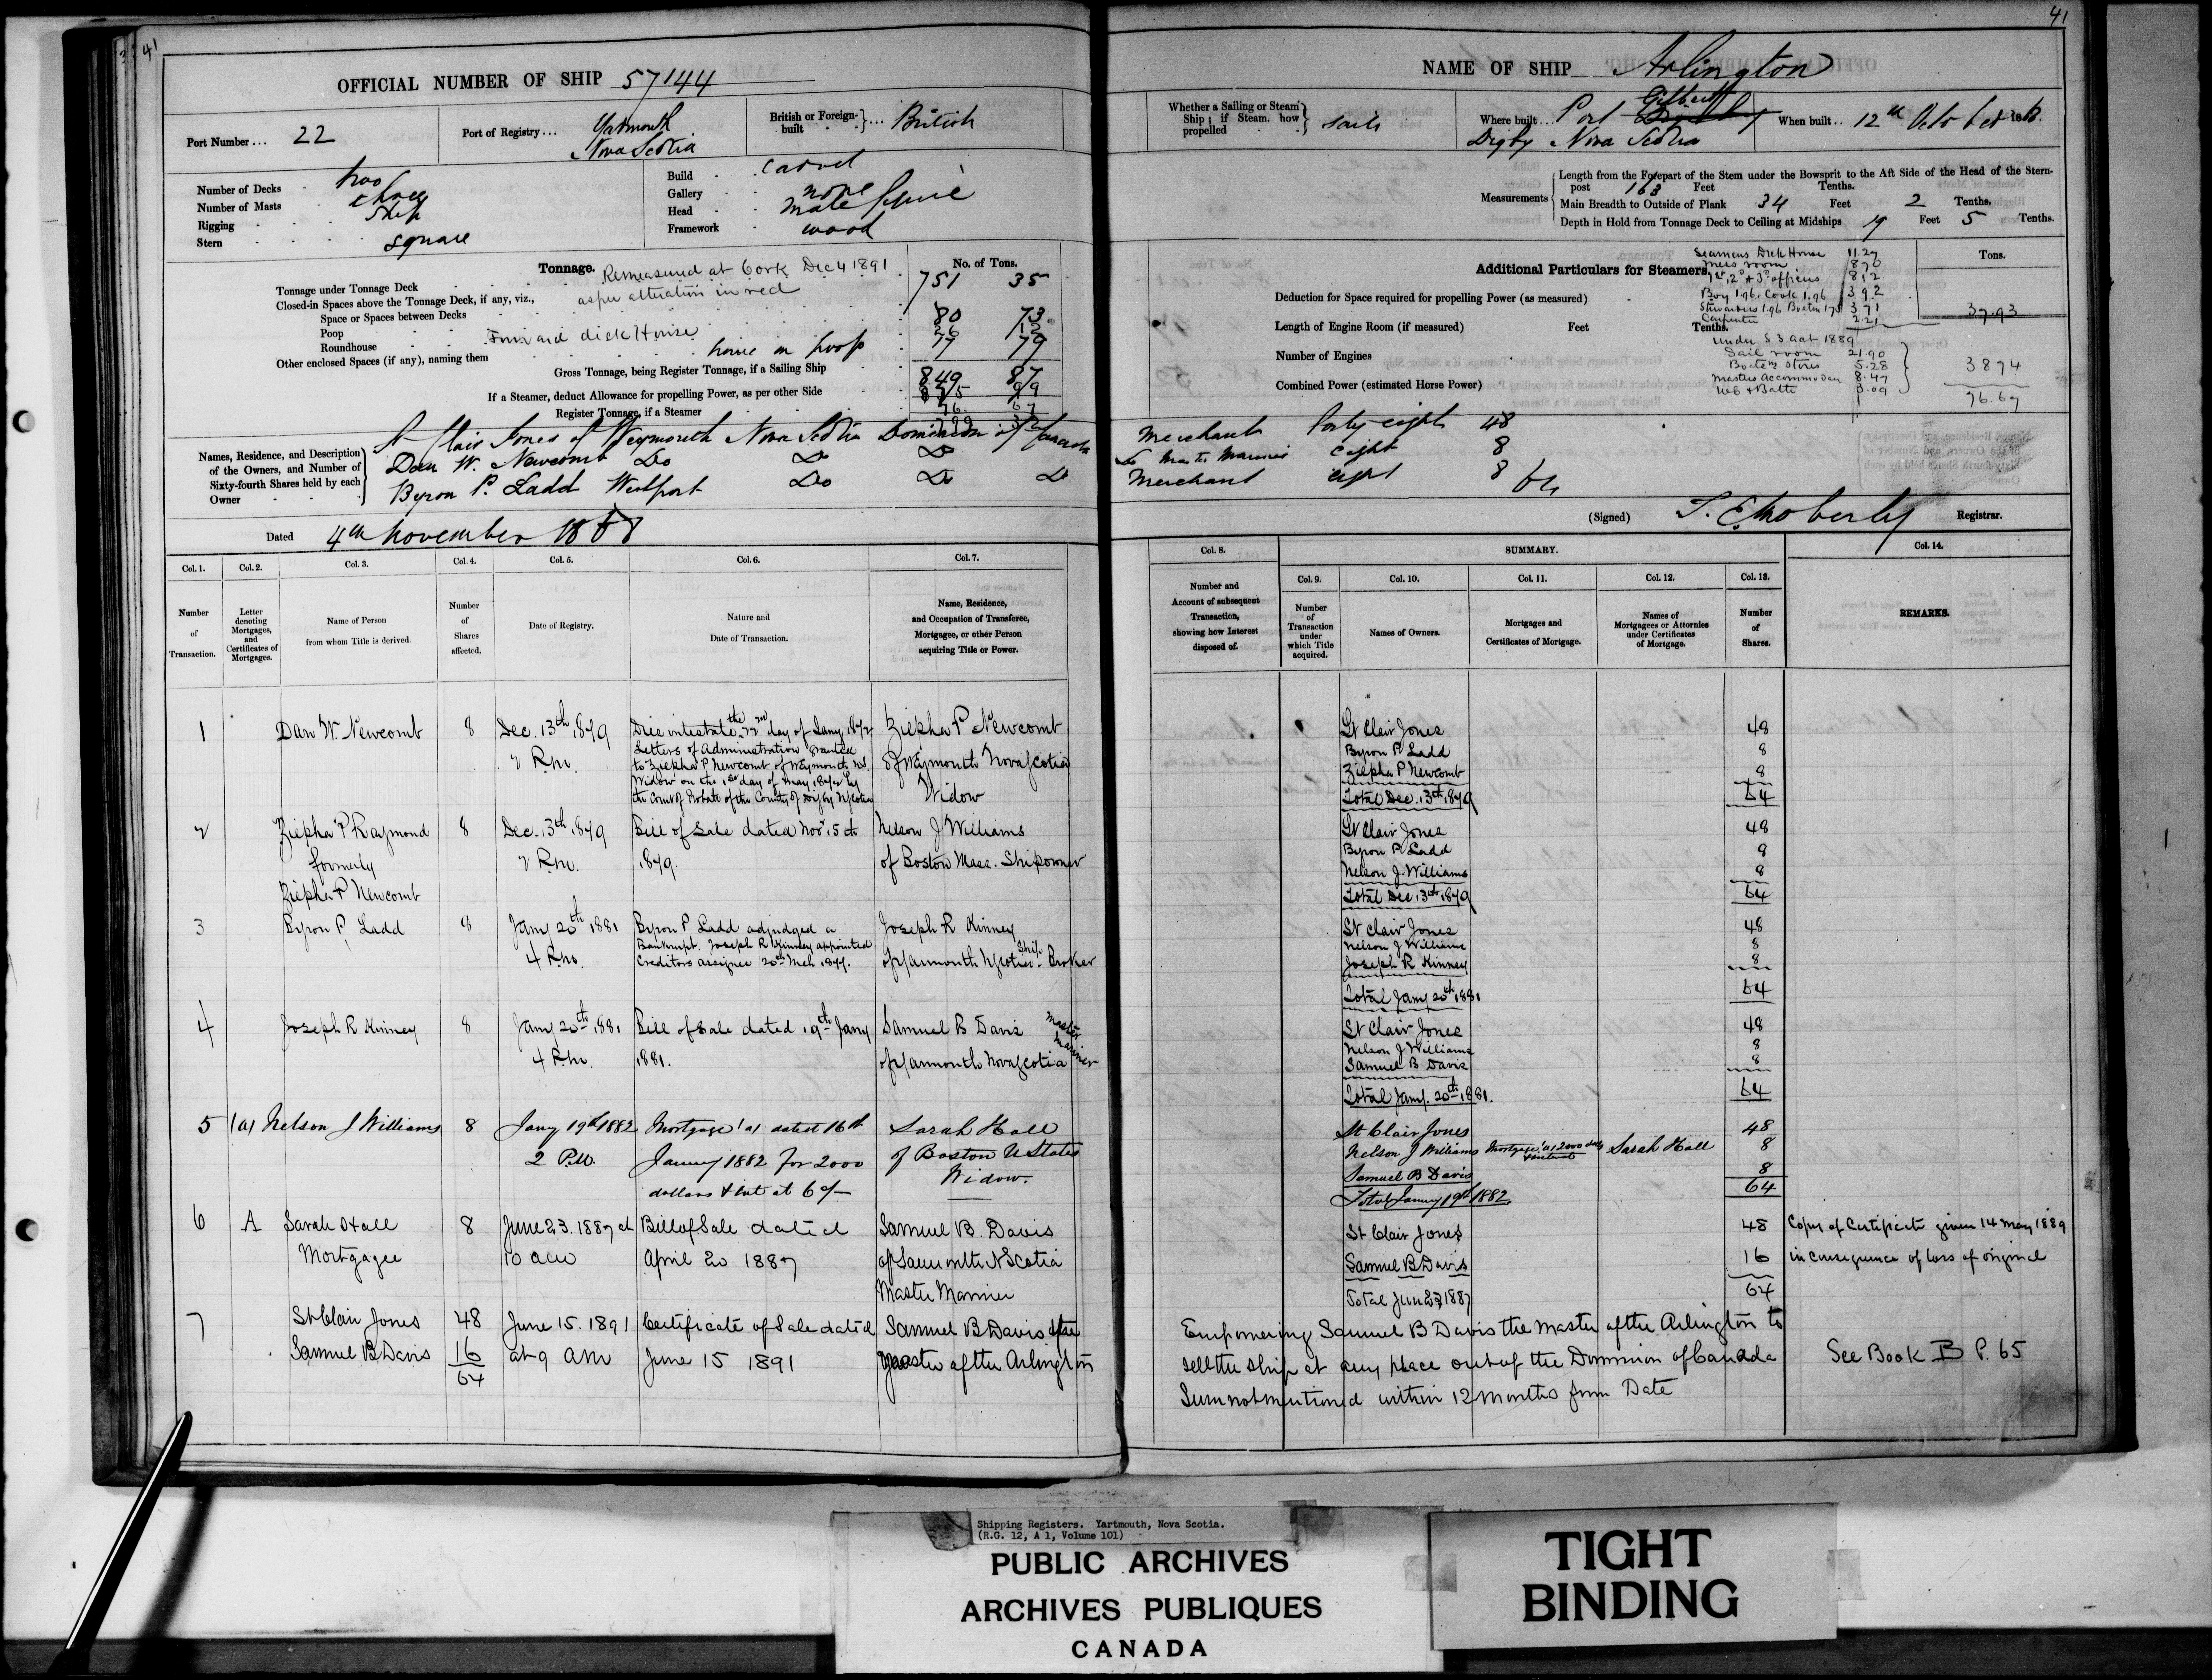 41
OFFICIAL NUMBER OF SHIP 57144
Port Number ... 22
Port of Registry ... Yarmouth
Nova Scotia
British or Foreign-built ... British
Number of Decks two
Number of Masts three
Rigging Ship
Stern square
Build carvel
Gallery none
Head male figure
Framework wood
Tonnage. Remeasured at Cork Dec 4 1891
as per alteration in red
No. of Tons.
Tonnage under Tonnage Deck 751 35
Closed-in Spaces above the Tonnage Deck, if any, viz.,
Space or Spaces between Decks
Poop 80 73
Roundhouse Forward deck House
Other enclosed Spaces (if any), naming them house on poop 17 79
Gross Tonnage, being Register Tonnage, if a Sailing Ship 849 87
If a Steamer, deduct Allowance for propelling Power, as per other Side
Register Tonnage, if a Steamer
Names, Residence, and Description of the Owners, and Number of Sixty-fourth Shares held by each Owner
St Clair Jones of Weymouth Nova Scotia Dominion of Canada
Dan W. Newcomb Do Do Do
Byron P. Ladd Westport Do Do Do
Dated 4th November 1868
Col. 1. Col. 2. Col. 3. Col. 4. Col. 5. Col. 6. Col. 7.
Number of Transaction.
Letter denoting Mortgages, and Certificates of Mortgages.
Name of Person from whom Title is derived.
Number of Shares affected.
Date of Registry.
Nature and Date of Transaction.
Name, Residence, and Occupation of Transferee, Mortgagee, or other Person acquiring Title or Power.
1 Dan W. Newcomb 8 Dec. 13th 1879
2 P.m.
Died intestate the 22nd day of Jany 1872
Letters of Administration granted
to Ziepha P Newcomb of Weymouth N.S.
Widow on the 1st day of May 1872 by
the Court of Probate of the County of Digby NScotia
Ziepha P Newcomb
of Weymouth Nova Scotia
Widow
2 Ziepha P Raymond
formerly
Ziepha P Newcomb
8 Dec. 13th 1879
2 P.m.
Bill of Sale dated Nov 15th
1879.
Nelson J Williams
of Boston Mass. Shipowner
3 Byron P Ladd 8 Jany 20th 1881
4 P.m.
Byron P Ladd adjudged a
Bankrupt. Joseph R Kinney appointed
Creditors assignee 20th Mch 1877.
Joseph R Kinney
of Yarmouth NScotia Ship Broker
4 Joseph R Kinney 8 Jany 20th 1881
4 P.m.
Bill of Sale dated 19th Jany
1881.
Samuel B Davis Master Mariner
of Yarmouth Nova Scotia
5 (a) Nelson J Williams 8 Jany 19th 1882
2 P.M.
Mortgage 'a' dated 16th
January 1882 for 2000
dollars & int at 6 %
Sarah Hall
of Boston U States
Widow.
6 A Sarah Hall
Mortgagee
8 June 23. 1887 at
10 am
Bill of Sale dated
April 20 1887
Samuel B. Davis
of Yarmouth N Scotia
Master Mariner
7 St Clair Jones 48
Samuel B Davis 16
64
June 15. 1891
at 9 AM
Certificate of Sale dated
June 15 1891
Samuel B Davis
Master of the Arlington
41
NAME OF SHIP Arlington
Whether a Sailing or Steam Ship; if Steam, how propelled Sails
Where built ... Port Gilbert
Digby Nova Scotia
When built .. 12th October 1868.
Measurements
Length from the Forepart of the Stem under the Bowsprit to the Aft Side of the Head of the Stern-post 163 Feet Tenths.
Main Breadth to Outside of Plank 34 Feet 2 Tenths.
Depth in Hold from Tonnage Deck to Ceiling at Midships 19 Feet 5 Tenths.
Additional Particulars for Steamers.
Tons.
Deduction for Space required for propelling Power (as measured)
Length of Engine Room (if measured) Feet Tenths.
Number of Engines
Combined Power (estimated Horse Power)
Seamens Deck House 11.27
Mess room 8 70
1st, 2d & 3d officers 8 12
Boy 1.96. Cook 1.96 3 92
Stewardess 1.96 Boatsn 1.75 3 71
Carpenter 2.21
37.93
Under S 3 Act 1889
Sail room 21.90
Boatsns Stores 5.28
Masters accommodan 8.47
3.09
38 74
76.67
Merchant Forty eight 48
Do Master Mariner Eight 8
Merchant eight 8 64
(Signed) T. E. Moberly Registrar.
Col. 8. SUMMARY. Col. 14.
Col. 9. Col. 10. Col. 11. Col. 12. Col. 13.
Number and Account of subsequent Transaction, showing how Interest disposed of.
Number of Transaction under which Title acquired.
Names of Owners.
Mortgages and Certificates of Mortgage.
Names of Mortgagees or Attornies under Certificates of Mortgage.
Number of Shares.
REMARKS.
St Clair Jones 48
Byron P Ladd 8
Ziepha P Newcomb 8
Total Dec. 13th 1879 64
St Clair Jones 48
Byron P Ladd 8
Nelson J. Williams 8
Total Dec 13th 1879 64
St Clair Jones 48
Nelson J Williams 8
Joseph R Kinney 8
Total Jany 20th 1881 64
St Clair Jones 48
Nelson J Williams 8
Samuel B Davis 8
Total Jany. 20th 1881. 64
St Clair Jones 48
Nelson J Williams Mortgage 'a' 2000 dolls & interest Sarah Hall 8
Samuel B Davis 8
Total Jany 19th 1882 64
St Clair Jones 48
Samuel B Davis 16
Total June 23, 1887 64
Copy of Certificate given 14 May 1889
in consequence of loss of original
Empowering Samuel B Davis the Master of the Arlington to
sell the Ship at any place out of the Dominion of Canada
Sum not mentioned within 12 months from Date
See Book B P. 65
Shipping Registers. Yartmouth, Nova Scotia.
(R.G. 12, A 1, Volume 101)
PUBLIC ARCHIVES
ARCHIVES PUBLIQUES
CANADA
TIGHT
BINDING